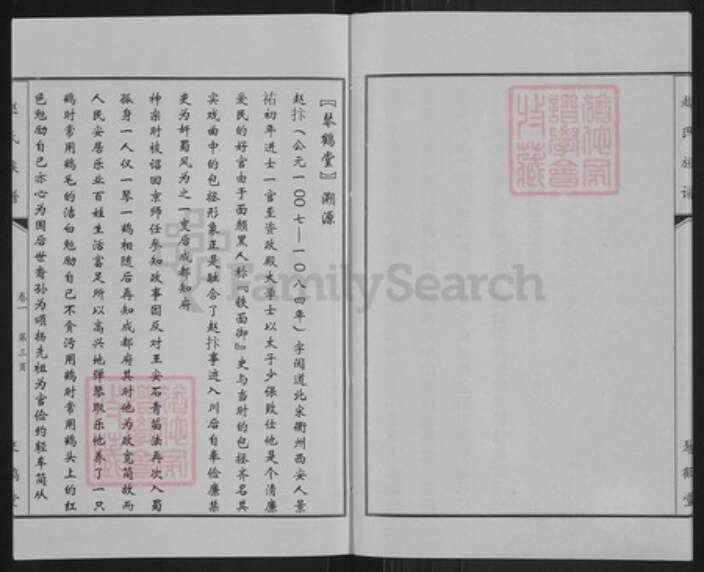 赵氏族谱
琴鹤堂
『琴鹤堂』溯源
赵抃(公元一〇〇七—一〇八四年)字阅道北宋衢州西安人景
祐初年进士一官至资政殿大学士以太子少保致仕他是个清廉
爱民的好官由于面颜黑人称『铁面御』史与当时的包拯齐名其
实戏曲中的包拯形象正是融合了赵抃事迹入川后自奉俭廉禁
吏为奸蜀风为之一变后成都知府
神宗时被诏回京师任参知政事因反对王安石青苗法再次入蜀
孤身一人仅一琴一鹤相随后再知成都府其时他为政宽简故而
人民安居乐业百姓生活富足所以高兴地弹琴取乐他养了一只
鹤时常用鹤毛的洁白勉励自己不贪污用鹤时常用鹤头上的红
色勉励自己赤心为国后世裔孙为颂扬先祖为官俭约轻车简从
赵氏族谱
卷一
第三页
琴鹤堂
FamilySearch
谱学会